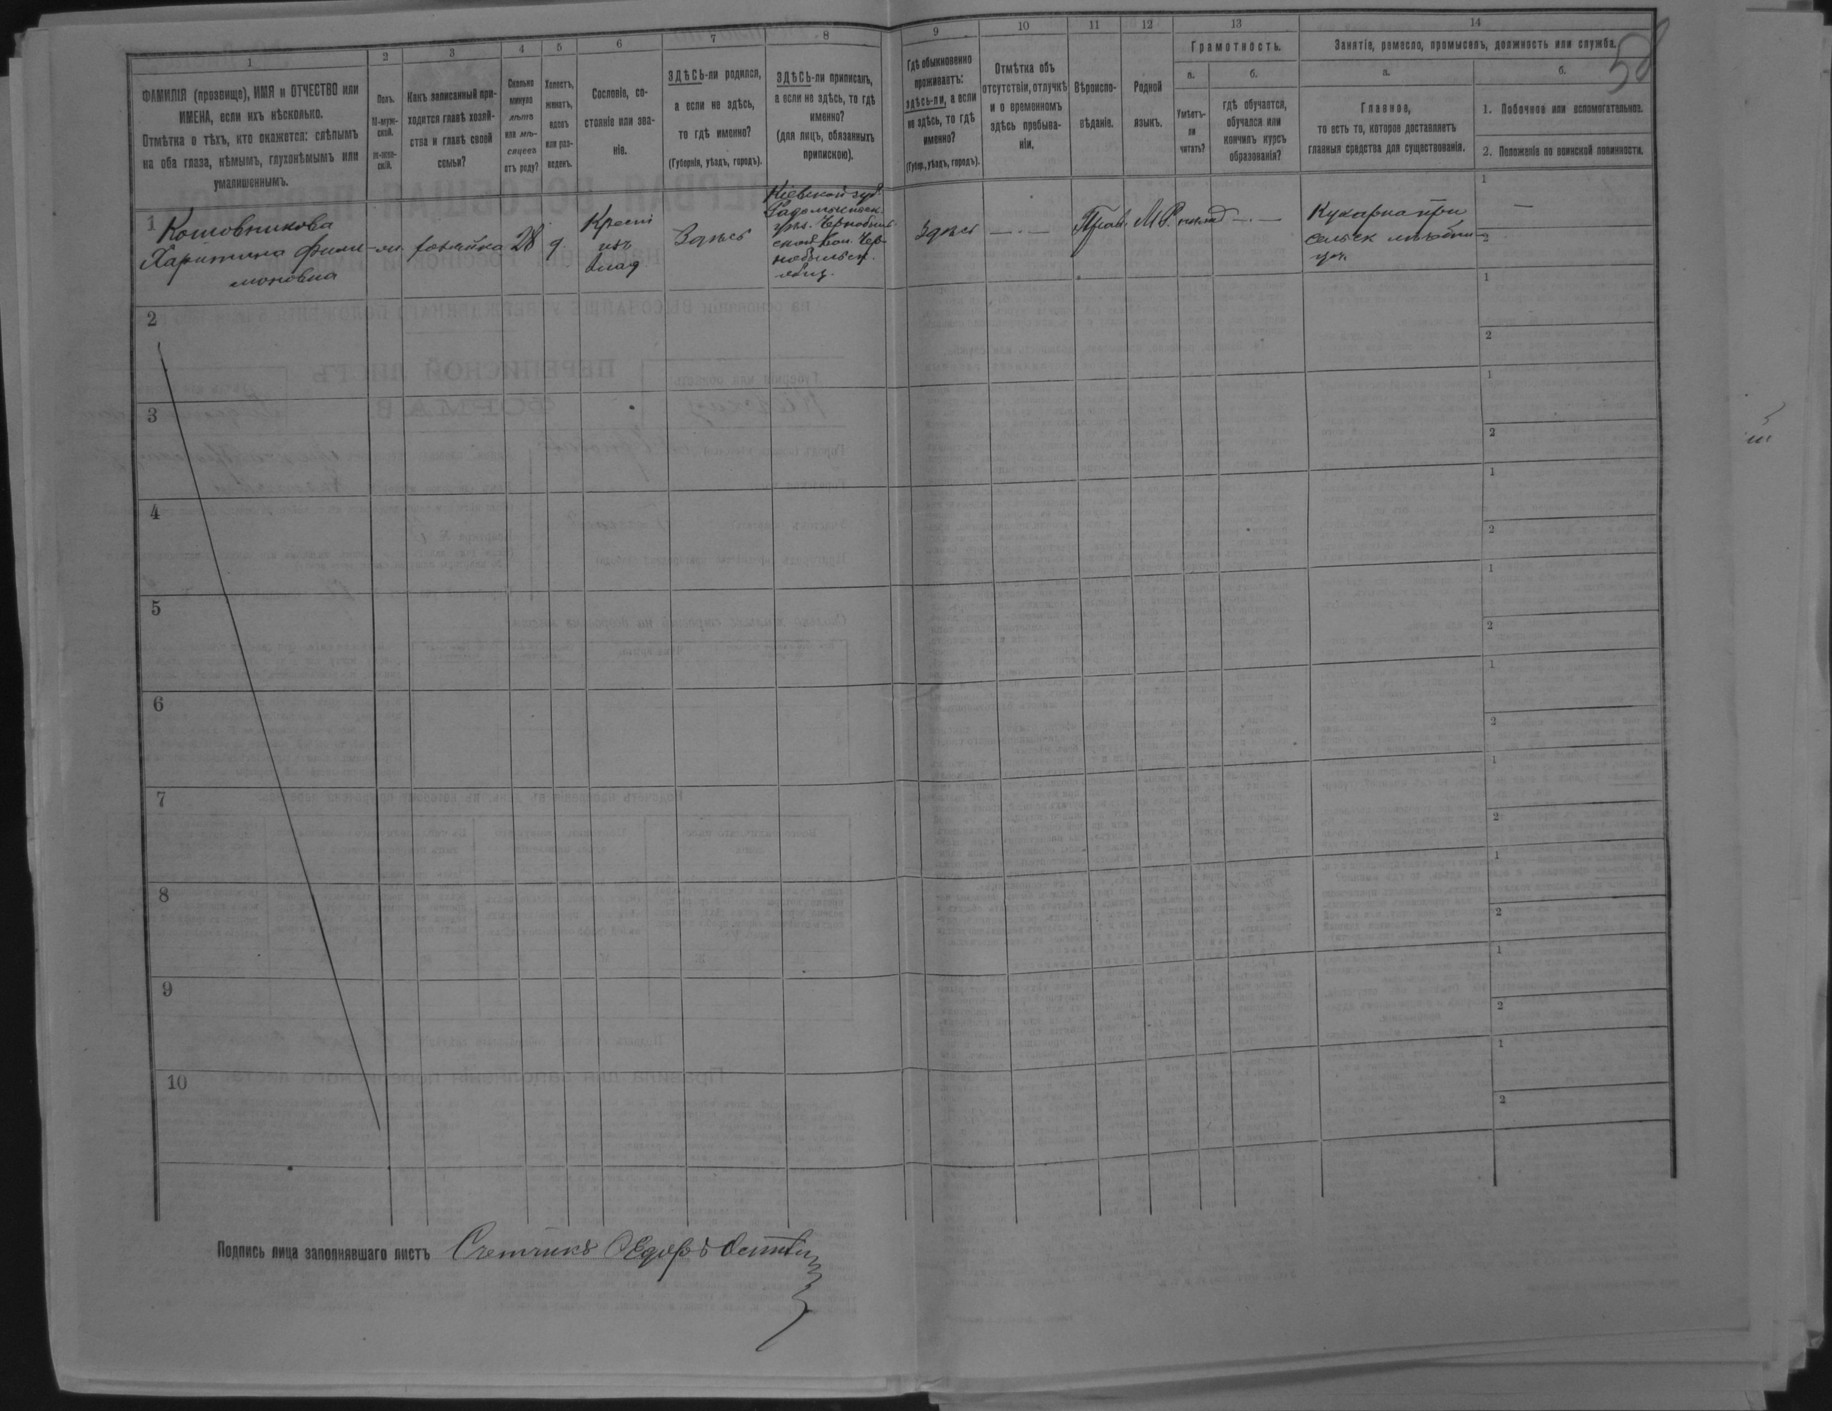 58
1
2
3
4
5
6
7
8
9
10
11
12
13
14
ФАМИЛІЯ (прозвище), ИМЯ и ОТЧЕСТВО или
ИМЕНА, если ихъ нѣсколько.
Отмѣтка о тѣхъ, кто окажется: слѣпымъ
на оба глаза, нѣмымъ, глухонѣмымъ или
умалишеннымъ.
Полъ.
М-муж-
ской.
Ж-жен-
скій.
Какъ записанный при-
ходится главѣ хозяй-
ства и главѣ своей
семьи?
Сколько
минуло
лѣтъ
или мѣ-
сяцевъ
отъ роду?
Холостъ,
женатъ,
вдовъ
или раз-
веденъ.
Сословіе, со-
стояніе или зва-
ніе.
ЗДѢСЬ-ли родился,
а если не здѣсь,
то гдѣ именно?
(Губернія, уѣздъ, городъ).
ЗДѢСЬ-ли приписанъ,
а если не здѣсь, то гдѣ
именно?
(для лицъ, обязанныхъ
припискою).
Гдѣ обыкновенно
проживаетъ:
здѣсь-ли, а если
не здѣсь, то гдѣ
именно?
(Губер., уѣздъ, городъ).
Отмѣтка объ
отсутствіи, отлучкѣ
и о временномъ
здѣсь пребыва-
ніи.
Вѣроиспо-
вѣданіе.
Родной
языкъ.
Грамотность.
а.
б.
Умѣетъ-
ли
читать?
гдѣ обучается,
обучался или
кончилъ курсъ
образованія?
Занятіе, ремесло, промыселъ, должность или служба.
а.
б.
Главное,
то есть то, которое доставляетъ
главныя средства для существованія.
1. Побочное или вспомогательное.
2. Положеніе по воинской повинности.
1
Кошовникова
Харитина Фили-
моновна
хозяйка
28
д
Крест
изъ
влад
Здѣсь
Кіевской губ
Радомысльск
уѣз. Чернобыль
ской вол. Чер-
нобыльск.
общ.
Здѣсь
Прав.
МR
Кухарка при
сельск
1 —
2
2
1
2
3
1
2
4
1
2
5
1
2
6
1
2
7
1
2
8
1
2
9
1
2
10
1
2
Подпись лица заполнявшаго листъ Счетчикъ